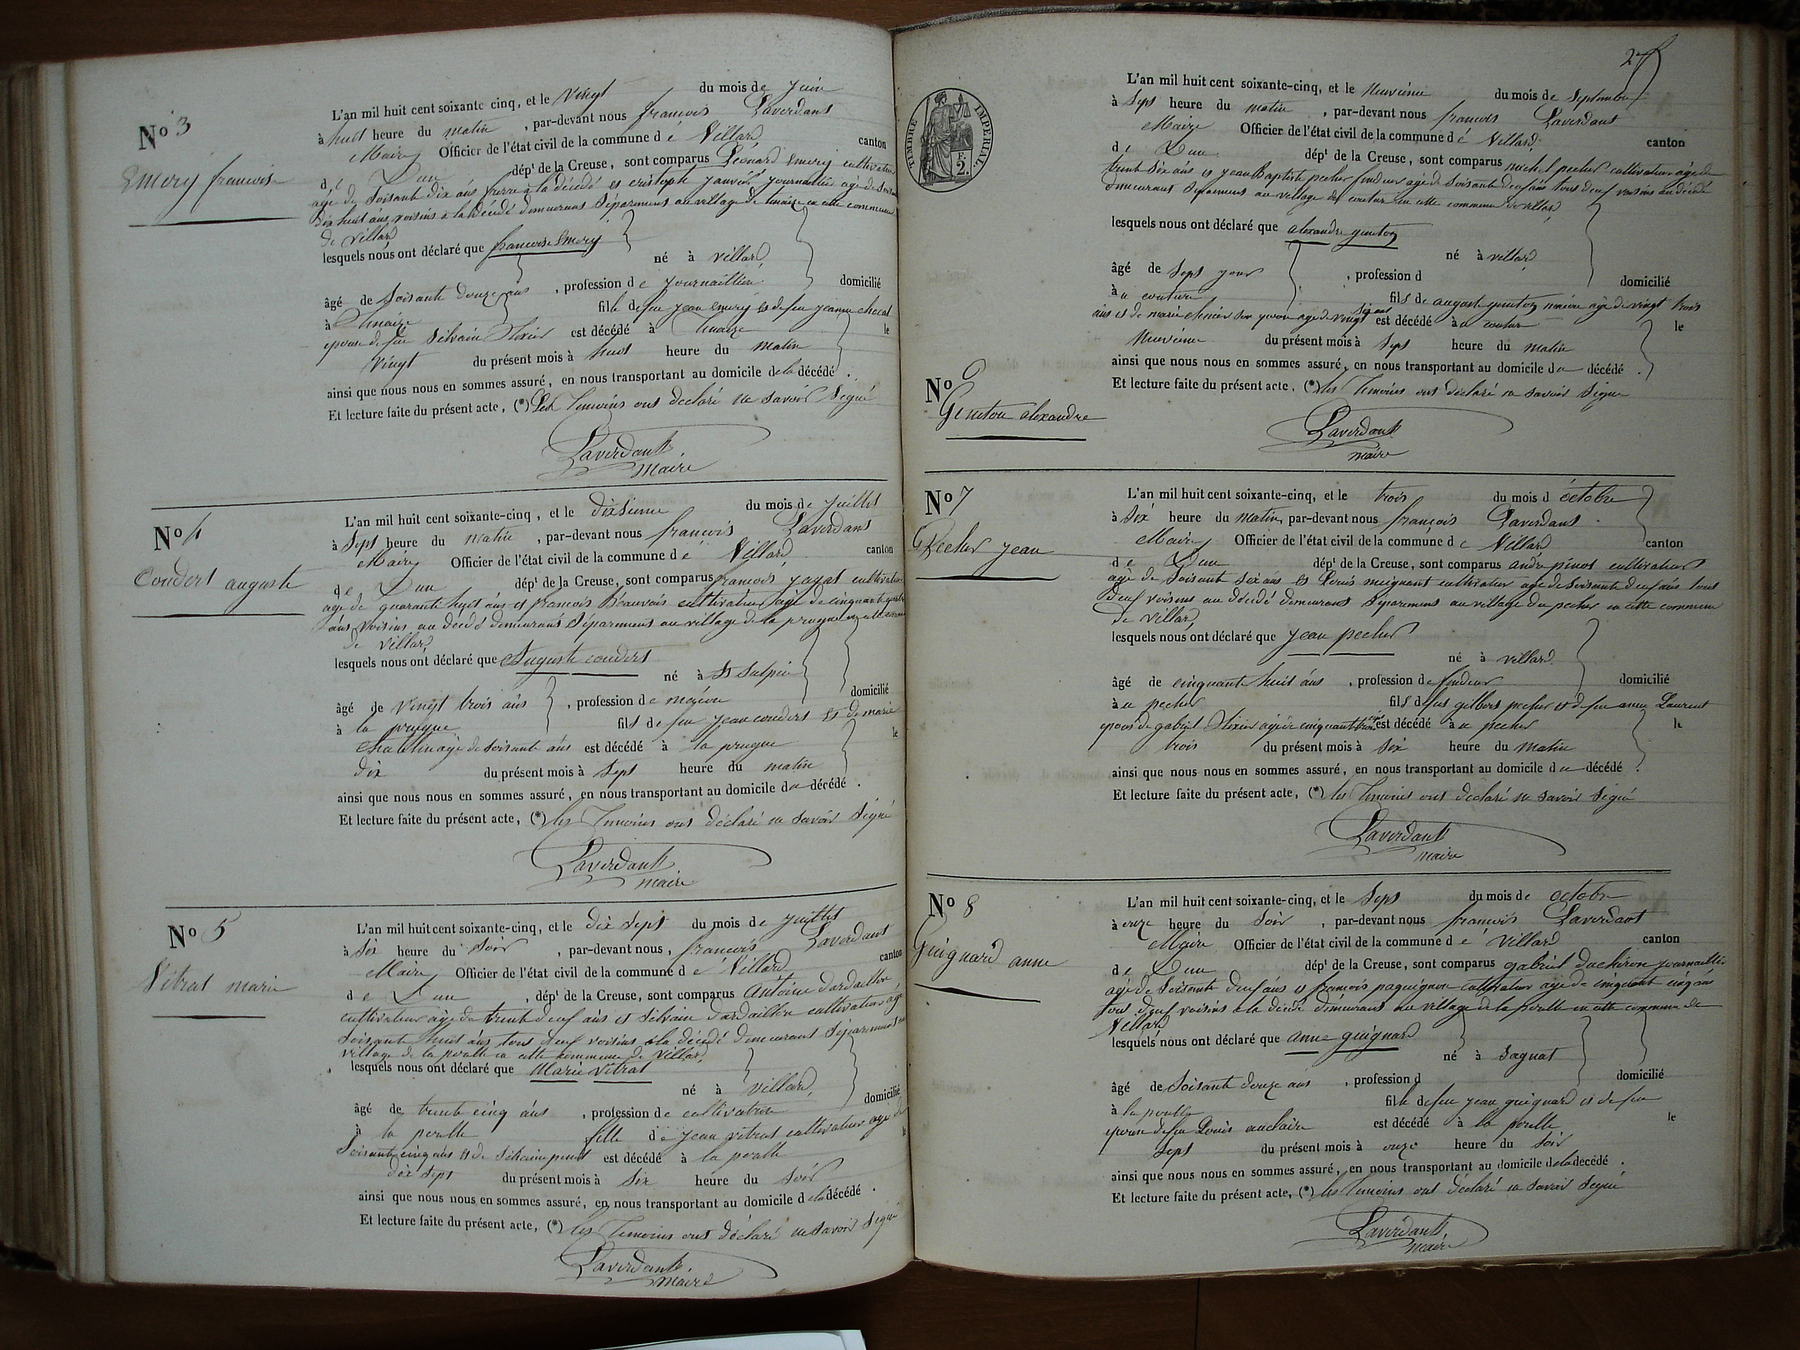 No 3
Emery francoise
L'an mil huit cent soixante cinq, et le vingt du mois de Juin
à huit heure du matin, par-devant nous francois Laverdant
Maire Officier de l'état civil de la commune d e Villard canton
d e Dun dépt de la Creuse, sont comparus Léonard Emery cultivateur
agé de soisante dix ans frere a la décédé et cristophe janvier journailier age de soisante
dix huit ans voisins a la décédé demeurant séparement au village de linaize en cette commune
de Villard
lesquels nous ont déclaré que francoise Emery
né à villard
âgé de soisante douze ans, profession d e journaillière domicilié
à linaize fille de feu jean emery et de feu jeanne
epouse de feu Silvain Tixier est décédé à linaize le
vingt du présent mois à huit heure du matin
ainsi que nous nous en sommes assuré, en nous transportant au domicile de la décédé.
Et lecture faite du présent acte, (*) les temoins ont declaré ne savoir signé
Laverdant
maire
No 4
Coudert auguste
L'an mil huit cent soixante-cinq, et le dixsieme du mois de juillet
à sept heure du matin, par-devant nous francois Laverdant
Maire Officier de l'état civil de la commune d e Villard canton
d e Dun dépt de la Creuse, sont comparus francois jayat cultivateur
age de quarante huit ans et francois Beauvais cultivateur age de cinquante quatre
ans voisins au décédé demeurant séparement au village de la prugne en cette commune
de villard
lesquels nous ont déclaré que Auguste coudert
né à St Sulpice
âgé de vingt trois ans, profession d e maçon domicilié
à la prugne fils de feu jean coudert et de marie
agé de soisante ans est décédé à la prugne le
dix du présent mois à sept heure du matin
ainsi que nous nous en sommes assuré, en nous transportant au domicile du décédé.
Et lecture faite du présent acte, (*) les temoins ont déclaré ne savoir signé
Laverdant
maire
No 5
Vitrat marie
L'an mil huit cent soixante-cinq, et le dix sept du mois de juillet
à six heure du soir, par-devant nous, francois Laverdant
Maire Officier de l'état civil de la commune d e Villard canton
d e Dun, dépt de la Creuse, sont comparus Antoine Dardaillon
cultivateur age de trente deuf ans et Silvain Dardaillon cultivateur agé
soisante huit ans tous deuf voisins a la décédé demeurant séparement au
village de la poulle en cette commune de villard
lesquels nous ont déclaré que Marie Vitrat
né à villard
âgé de trente cinq ans, profession d e cultivatrice domicilié
à la poulle fille d e jean vitrat cultivateur agé de
soisante cinq ans et de Silvaine pinot est décédé à la poulle le
dix sept du présent mois à six heure du soir
ainsi que nous nous en sommes assuré, en nous transportant au domicile de la décédé.
Et lecture faite du présent acte, (*) les temoins ont déclaré ne savoir signé
Laverdant
maire
27
TIMBRE IMPERIAL
F. 2.
No 6
Geniton alexandre
L'an mil huit cent soixante-cinq, et le Neuvième du mois de septembre
à sept heure du matin, par-devant nous francois Laverdant
Maire Officier de l'état civil de la commune d e Villard canton
d e Dun dépt de la Creuse, sont comparus michel pecher cultivateur agé de
trente six ans et jean Baptiste pecher findeur agé de soisante deuf ans tous deuf voisins au décédé
demeurant séparement au village de coutur en cette commune de villard
lesquels nous ont déclaré que alexandre geniton
né à villard
âgé de sept jour, profession d domicilié
à u couture fils de auguste geniton agé de vingt trois
ans et de marie son epouse age de vingt sept est décédé à u coutur le
Neuvième du présent mois à sept heure du matin
ainsi que nous nous en sommes assuré, en nous transportant au domicile du décédé.
Et lecture faite du présent acte, (*) les temoins ont déclaré ne savoir signe
Laverdant
maire
No 7
Pecher jean
L'an mil huit cent soixante-cinq, et le trois du mois d'octobre
à six heure du matin, par-devant nous françois Laverdant
Maire Officier de l'état civil de la commune d e Villard canton
d e Dun dépt de la Creuse, sont comparus andre pinot cultivateur
age de soisante six ans et Louis meignant cultivateur age de soisante deuf ans tous
deuf voisins au décédé demeurant séparement au village du pecher en cette commune
de villard
lesquels nous ont déclaré que jean pecher
né à villard
âgé de cinquante huit ans, profession de findeur domicilié
à u pecher fils de feu gilbert pecher et de feu anne Laurent
epoux de gabriel Tixier agée de cinquante trois ans est décédé à u pecher le
trois du présent mois à six heure du matin
ainsi que nous nous en sommes assuré, en nous transportant au domicile du décédé.
Et lecture faite du présent acte, (*) les temoins ont declaré ne savoir signé
Laverdant
maire
No 8
Guignard anne
L'an mil huit cent soixante-cinq, et le sept du mois de octobre
à onze heure du soir, par-devant nous francois Laverdant
Maire Officier de l'état civil de la commune d e Villard canton
d e Dun dépt de la Creuse, sont comparus gabriel Duchiron journaillier
agé de soisante deuf ans et francois paquignon cultivateur age de cinquante cinq ans
tous deuf voisins a la décédé demeurant au village de la poulle en cette commune de
Villard
lesquels nous ont déclaré que anne guignard
né à Sagnat
âgé de soisante douze ans, profession d domicilié
à la poulle fille de feu jean guignard et de feu
epouse de feu Louis auclaire est décédé à la poulle le
sept du présent mois à onze heure du soir
ainsi que nous nous en sommes assuré, en nous transportant au domicile de la décédé.
Et lecture faite du présent acte, (*) les temoins ont déclaré ne savoir signé
Laverdant
maire